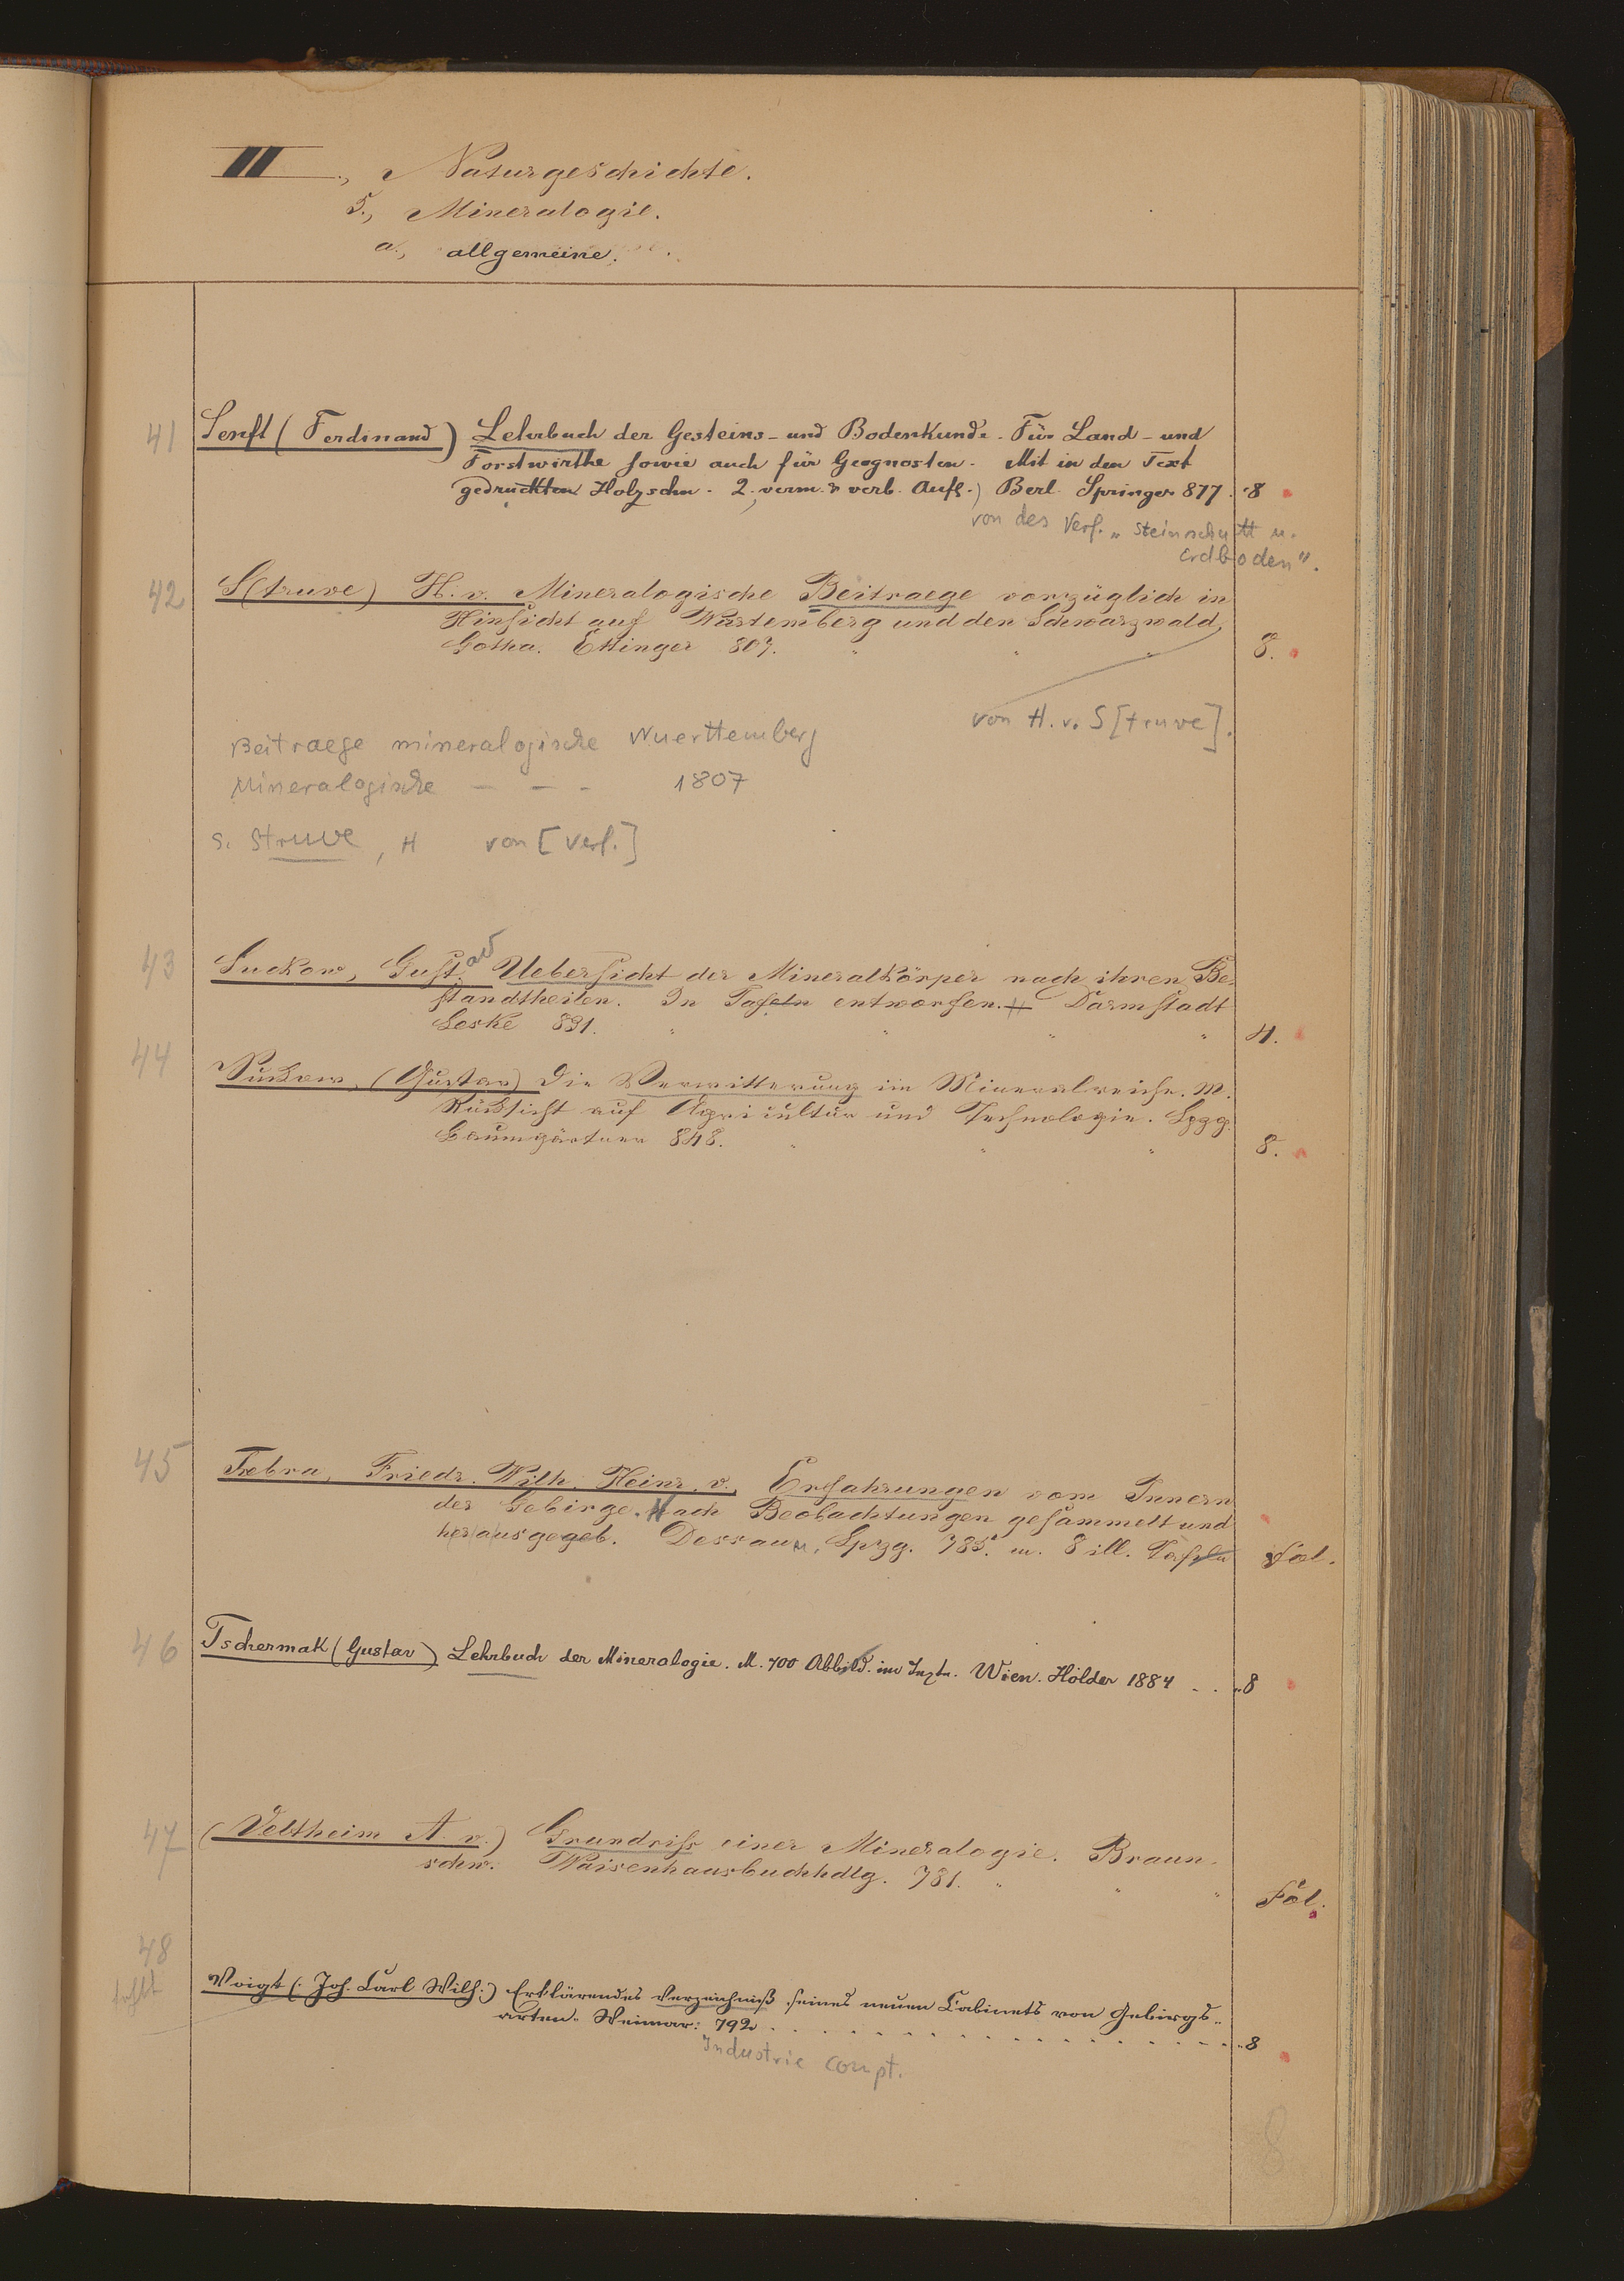 III., Naturgeschichte.
5., Mineralogie.
a., allgemeine.
41 Senft (Ferdinand) Lehrbuch der Gesteins- und Bodenkunde. Für Land- und
Forstwirthe sowie auch für Geognosten. Mit in den Text
gedruckten Holzschn. 2., verm. & verb. Aufl.) Berl. Springer 877. 8
von des Verf. „Steinschutt u.
Erdboden".
42 S(truve) H. v. Mineralogische Beitraege vorzüglich in
Hinsicht auf Würtemberg und den Schwarzwald,
Gotha. Ettinger 807. " " " 8.
von H. v. S[truve].
Beitraege mineralogische Wuerttemberg
Mineralogische — — - 1807
s. Struve, H von [Verf.]
43 Suckow, Gustav Uebersicht der Mineralkörper nach ihren Be-
standtheilen. In Tafeln entworfen. Darmstadt
Leske 831. " " " " 4.
44 Suckow, (Gustav) Die Verwitterung im Mineralreiche. M.
Rücksicht auf Agricultur und Technologie. Lpzg.
Baumgärtner 848. " " " 8.
45 Trebra, Friedr. Wilh. Heinr. v., Erfahrungen vom Innern
der Gebirge. Nach Beobachtungen gesammelt und
herausgegeb. Dessau u. Lpzg. 785. m. 8 ill. Tafeln Fol.
46 Tschermak (Gustav) Lehrbuch der Mineralogie. M. 700 Abbild. im Texte. Wien. Hölder 1884 . . „8
47 (Veltheim A. v.) Grundriss einer Mineralogie. Braun-
schw. Waisenhausbuchhdlg. 781. " " " Fol.
48 Voigt (: Joh. Carl Wilh:) Erklärendes Verzeichniß seines neuen Cabinets von Gebirgs-
fehlt arten. Weimar: 792. . . . . . . . . . . . . . „8
Industrie compt.
8